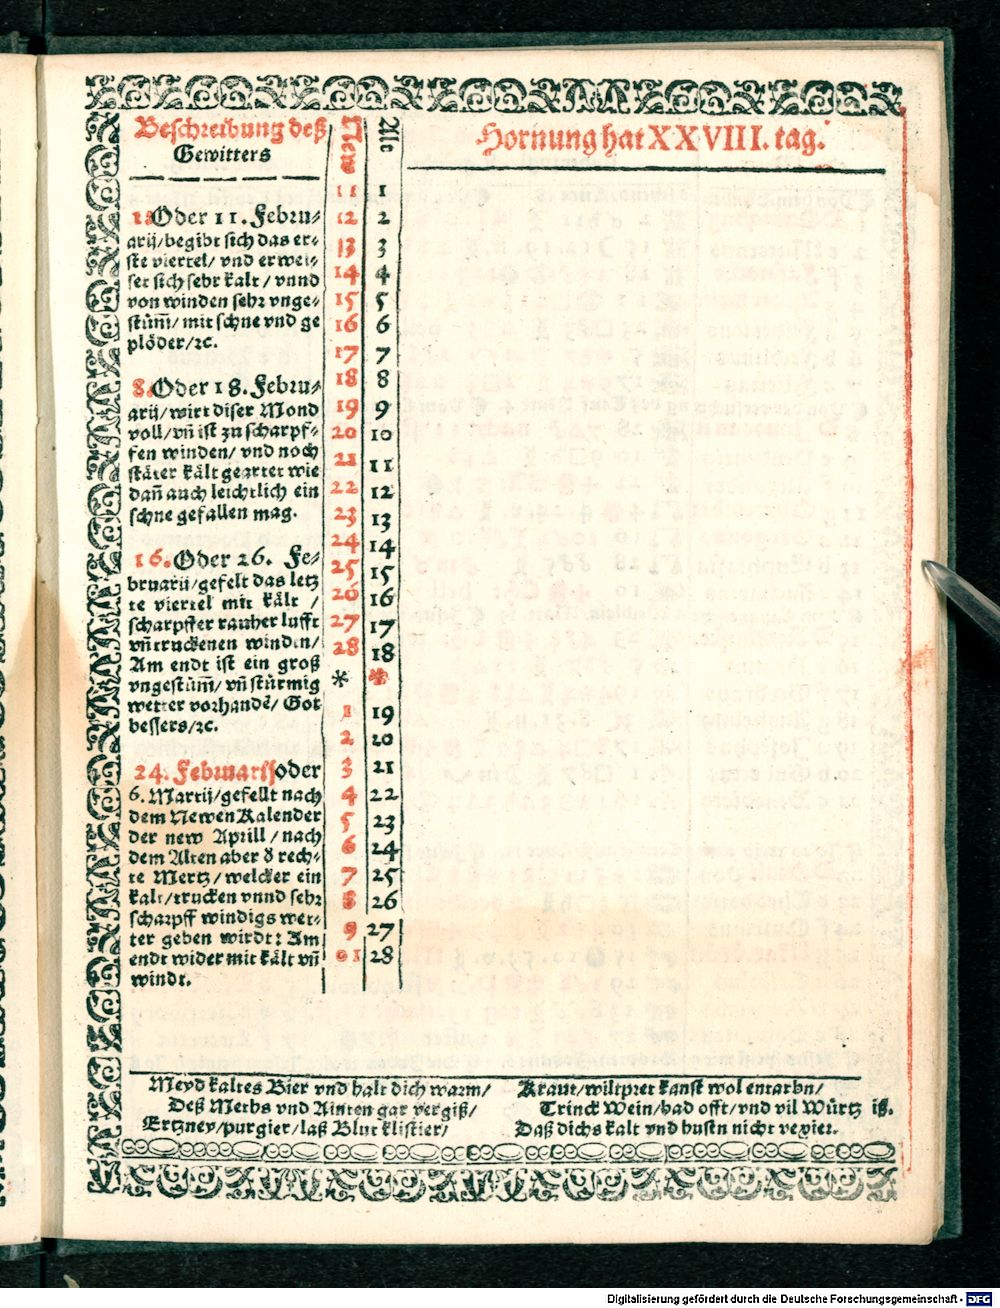 Beschreibung deß
Gewitters
Newe
Alte
Hornung hat XXVIII. tag.
1. Oder 11. Febru⸗
arij/begibt sich das er⸗
ste viertel/ vnd erwei⸗
set sich sehr kalt / vnnd
von winden sehr vnge⸗
stüm̃/ mit schne vnd ge
plöder/ꝛc.
8. Oder 18. Febru⸗
arij/ wirt diser Mond
voll/ vñ ist zu scharpf⸗
fen winden/ vnd noch
stäter kält geartet wie
dañ auch leichtlich ein
schne gefallen mag.
16. Oder 26. Fe⸗
bruarij/gefelt das letz
te viertel mit kält /
scharpffer rauher lufft
vñ truckenen winden/
Am endt ist ein groß
vngestüm̃/ vñ stürmig
wetter vorhandẽ/ Got
bessers/ꝛc.
24. Februarij oder
6. Martij/gefellt nach
dem Newen Kalender
der new Aprill / nach
dem Alten aber ð rech⸗
te Mertz/ welcher ein
kalt/trucken vnnd sehr
scharpff windigs wet⸗
ter geben wirdt: Am
endt wider mit kält vñ
windt.
11 1
12 2
13 3
14 4
15 5
16 6
17 7
18 8
19 9
20 10
21 11
22 12
23 13
24 14
25 15
26 16
27 17
28 18
* *
1 19
2 20
3 21
4 22
5 23
6 24
7 25
8 26
9 27
01 28
Meyd kaltes Bier vnd halt dich warm/
Deß Meths vnd Ainten gar vergiß/
Ertzney/purgier/laß Blut klistier/
Kraut/wiltpret kanst wol entarbn/
Trinck Wein/bad offt/vnd vil Würtz iß.
Daß dichs kalt vnd hustn nicht vexier.
Digitalisierung gefördert durch die Deutsche Forschungsgemeinschaft - DFG